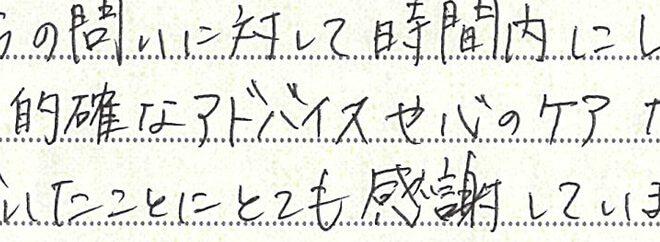 らの問いに対して時間内にし
的確なアドバイスや心のケア
いたことにとても感謝していま